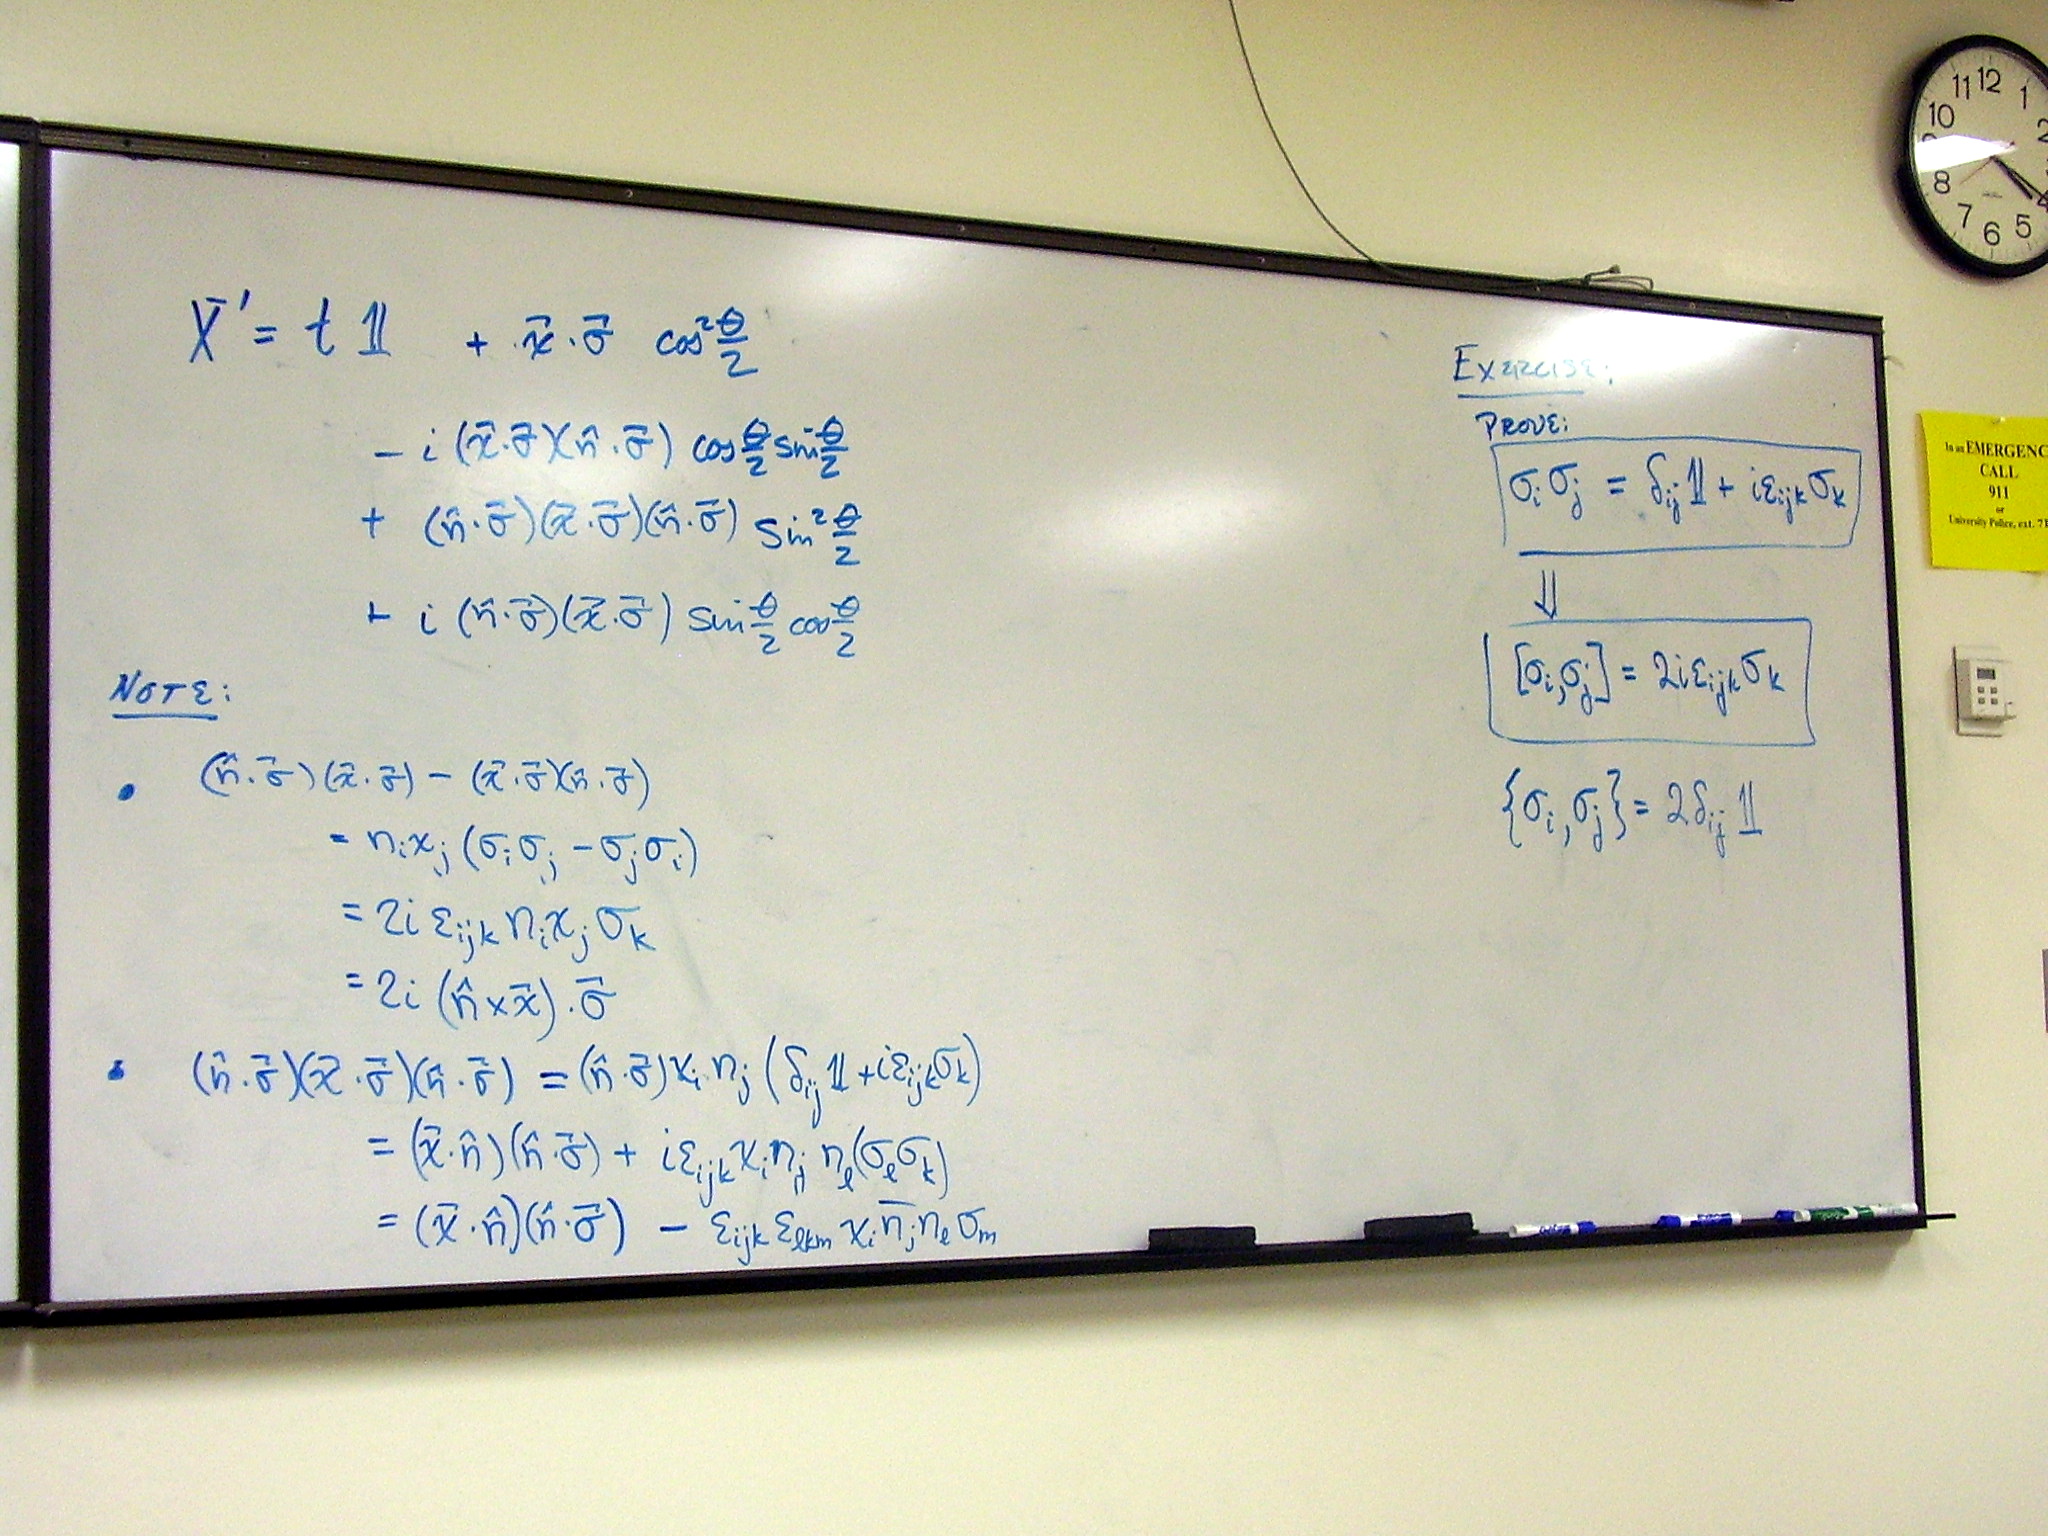 X' = t 𝟙 + x⃗·σ⃗ cos² θ/2
− i (x⃗·σ⃗)(n̂·σ⃗) cos θ/2 sin θ/2
+ (n̂·σ⃗)(x⃗·σ⃗)(n̂·σ⃗) sin² θ/2
+ i (n̂·σ⃗)(x⃗·σ⃗) sin θ/2 cos θ/2
NOTE:
• (n̂·σ⃗)(x⃗·σ⃗) − (x⃗·σ⃗)(n̂·σ⃗)
= nᵢxⱼ (σᵢσⱼ − σⱼσᵢ)
= 2i εᵢⱼₖ nᵢxⱼσₖ
= 2i (n̂×x⃗)·σ⃗
• (n̂·σ⃗)(x⃗·σ⃗)(n̂·σ⃗) = (n̂·σ⃗)xᵢnⱼ (δᵢⱼ𝟙 + iεᵢⱼₖσₖ)
= (x⃗·n̂)(n̂·σ⃗) + iεᵢⱼₖxᵢnⱼ nₗ(σₗσₖ)
= (x⃗·n̂)(n̂·σ⃗) − εᵢⱼₖεₗₖₘ xᵢnⱼnₗσₘ
EXERCISE:
PROVE:
σᵢσⱼ = δᵢⱼ𝟙 + iεᵢⱼₖσₖ
⇓
[σᵢ,σⱼ] = 2iεᵢⱼₖσₖ
{σᵢ,σⱼ} = 2δᵢⱼ𝟙
11 12 1
10 2
8 4
7 6 5
In an EMERGENC
CALL
911
or
University Police, ext. 71